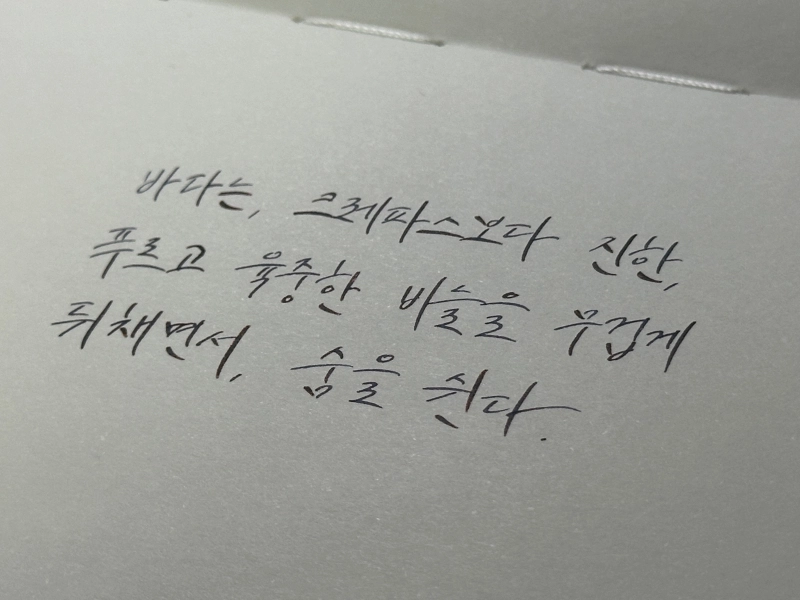 바다는, 크레파스보다 진한,
푸르고 육중한 비늘을 무겁게
뒤채면서, 숨을 쉰다.